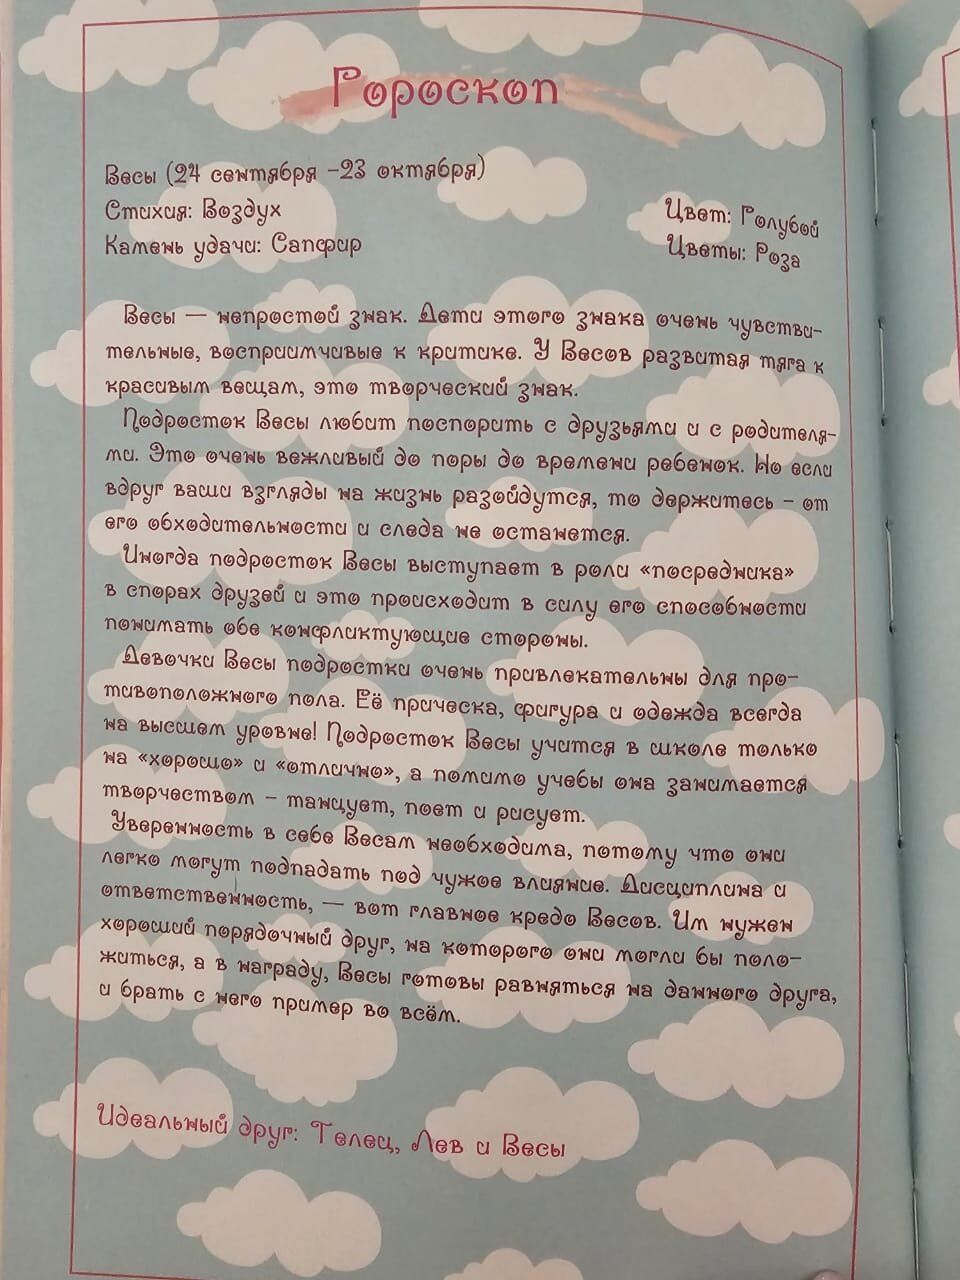 Гороскоп
Весы (24 сентября -23 октября)
Стихия: Воздух
Цвет: Голубой
Камень удачи: Сапфир
Цветы: Роза
Весы — непростой знак. Дети этого знака очень чувстви-
тельные, восприимчивые к критике. У Весов развитая тяга к
красивым вещам, это творческий знак.
Подросток Весы любит поспорить с друзьями и с родителя-
ми. Это очень вежливый до поры до времени ребенок. Но если
вдруг ваши взгляды на жизнь разойдутся, то держитесь – от
его обходительности и следа не останется.
Иногда подросток Весы выступает в роли «посредника»
в спорах друзей и это происходит в силу его способности
понимать обе конфликтующие стороны.
Девочки Весы подростки очень привлекательны для про-
тивоположного пола. Её прическа, фигура и одежда всегда
на высшем уровне! Подросток Весы учится в школе только
на «хорошо» и «отлично», а помимо учебы она занимается
творчеством – танцует, поет и рисует.
Уверенность в себе Весам необходима, потому что они
легко могут подпадать под чужое влияние. Дисциплина и
ответственность, — вот главное кредо Весов. Им нужен
хороший порядочный друг, на которого они могли бы поло-
житься, а в награду, Весы готовы равняться на данного друга,
и брать с него пример во всём.
Идеальный друг: Телец, Лев и Весы